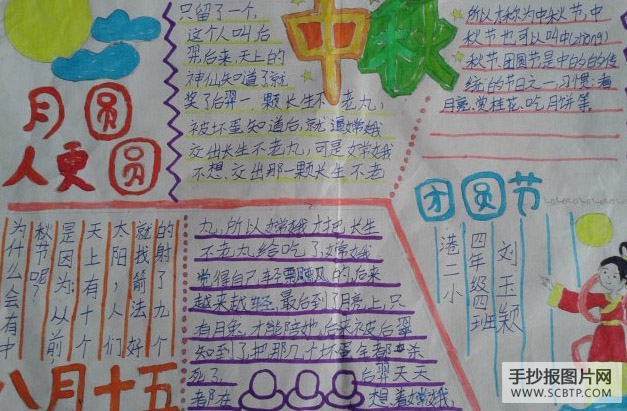 月圆
人更圆
为什么会有中
秋节呢?
是因为:从前
天上有十个
太阳,人们
就找箭法好
的射了九个
八月十五
只留了一个,
这个人叫后
羿后来,天上的
神仙知道了就
奖了后羿一颗长生不老丸,
被坏蛋知道后,就逼嫦娥
交出长生不老丸,可是嫦娥
不想交出那一颗长生不老
丸,所以嫦娥才把长生
不老丸给吃了,嫦娥
觉得自己轻飘飘的,后来
越来越轻,最后到了月亮上,只
有月兔才能陪她,后来被后羿
知到了,把那几十坏蛋全都杀
死了 后羿天天
都在 想着嫦娥,
中秋
所以称为中秋节,中
秋节也可以叫中(zhong)
秋节,团圆节是中的的传
统的节日之一,习惯:看
月亮、赏桂花、吃月饼等
团圆节
港二小
四年级四班
刘玉颖
手抄报图片网
WWW.SCBTP.COM